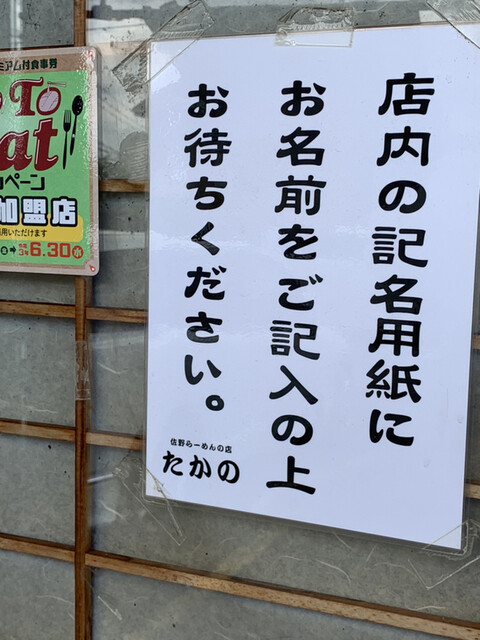 店内の記名用紙に
お名前をご記入の上
お待ちください。
佐野らーめんの店
たかの
ミアム付食事券
To
at
ペーン
加盟店
用いただけます
6.30